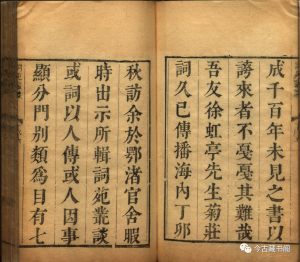 成千百年未見之書以
誇來者不戞戞其難哉
吾友徐虹亭先生菊莊
詞久已傳播海內丁卯
秋訪余於鄂渚官舍暇
時出示所輯詞苑叢談
或詞以人傳或人因事
顯分門別類爲目有七
今古藏书阁